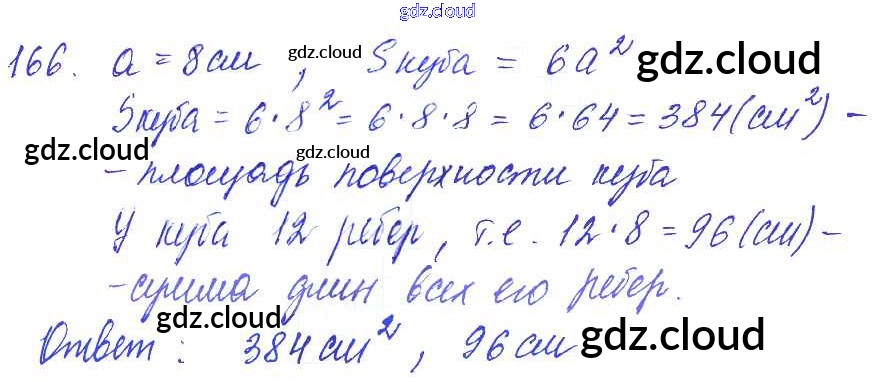 gdz.cloud
166. a = 8 см, Sкуба = 6a²
gdz.cloud gdz.cloud
Sкуба = 6·8² = 6·8·8 = 6·64 = 384 (см²) –
gdz.cloud gdz.cloud
– площадь поверхности куба
У куба 12 ребер, т.е. 12·8 = 96 (см) –
gdz.cloud gdz.cloud
– сумма длин всех его ребер.
gdz.cloud
Ответ: 384 см², 96 см
gdz.cloud